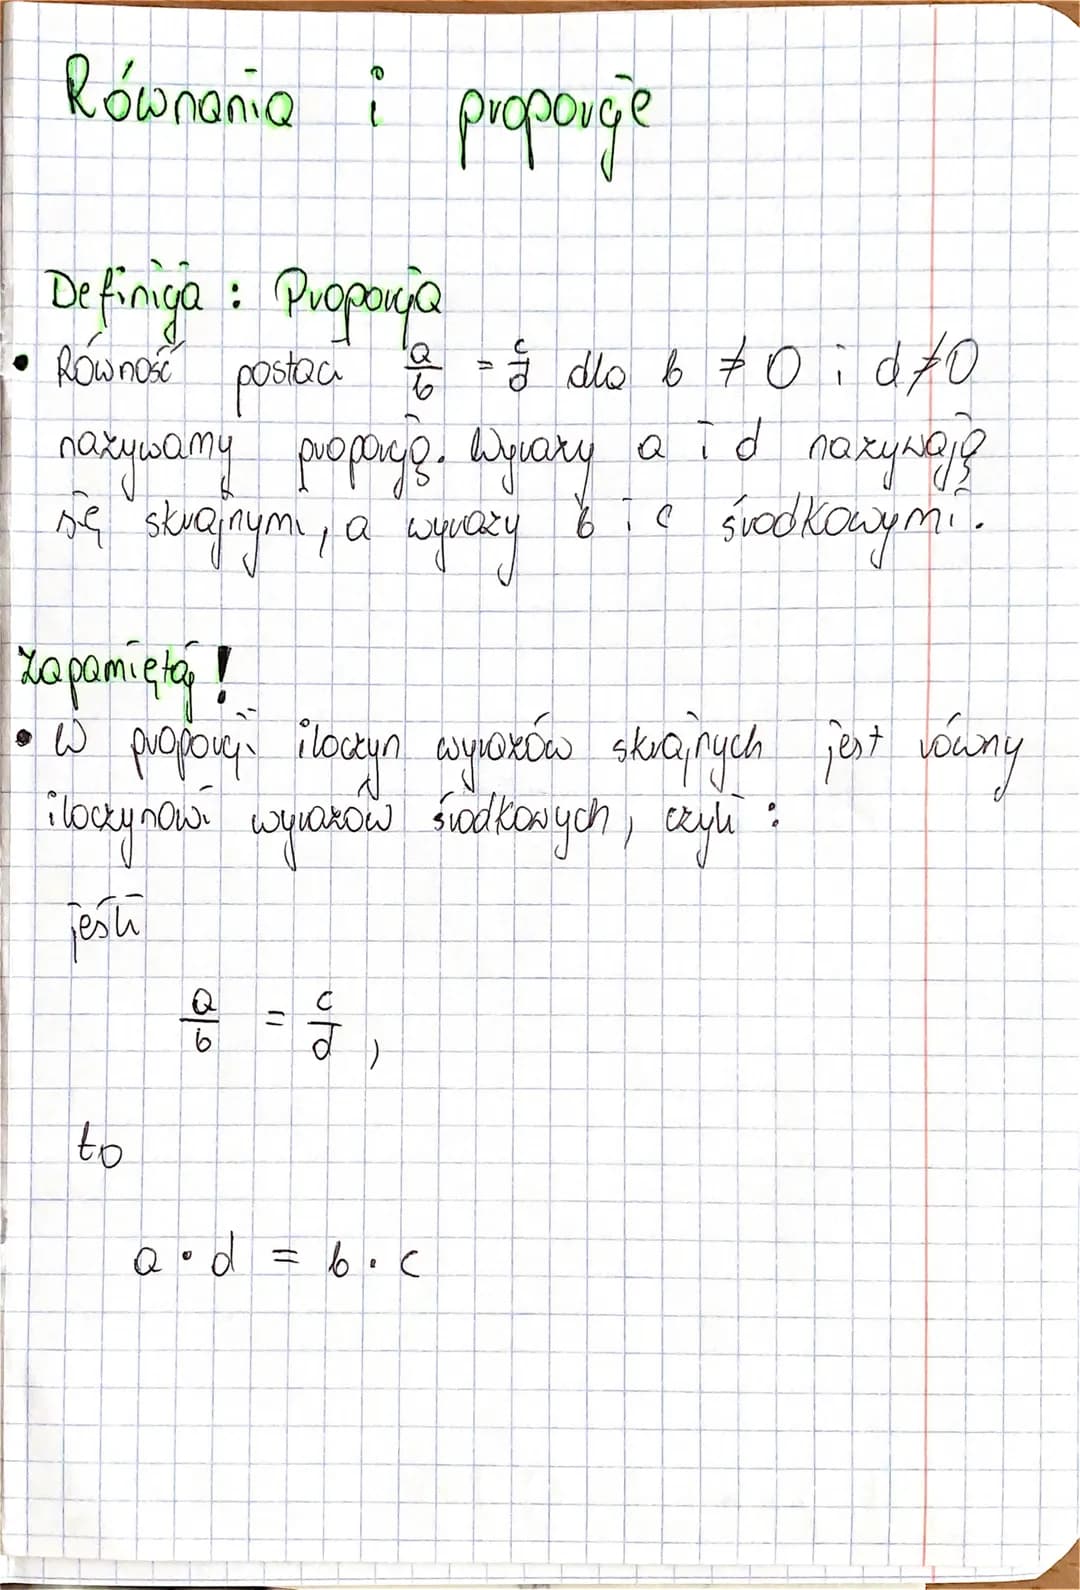 Równania i proporcje
Definicja : Proporcja
• Równość postaci a/b = c/d dla b ≠ 0 i d ≠ 0
nazywamy proporcją. Wyrazy a i d nazywają
się skrajnymi, a wyrazy b i c środkowymi.
Zapamiętaj !
• W proporcji iloczyn wyrazów skrajnych jest równy
iloczynowi wyrazów środkowych, czyli :
jeśli
a/b = c/d ,
to
a • d = b • c